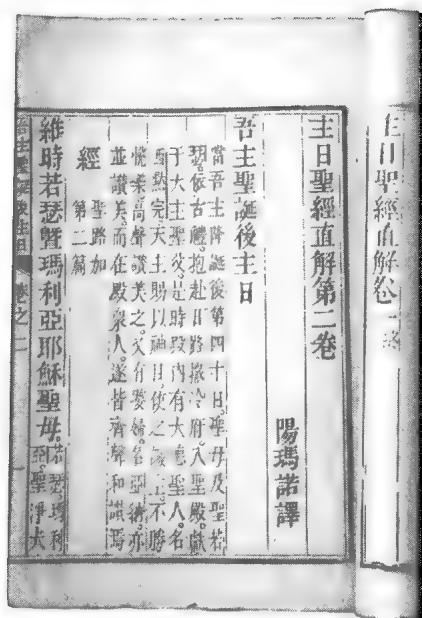 主日聖經直解卷一終
主日聖經直解第二卷
陽瑪諾譯
吾主聖誕後主日
當吾主降誕後第四十日。聖母及聖若
瑟。依古禮。抱赴日路撒冷府。入聖殿。獻
于大主聖父。是時殿內有大聖人。名
西默完。天主賜以神目。使之識主。不勝
樂。高聲讚美之。又有嫠婦。名亞納。亦
並讚美。而在殿衆人。遂皆齊聲和讚焉
經
聖路加
第二篇
維時若瑟暨瑪利亞耶穌聖母。
若瑟瑪利
亞。聖淨夫
吾主聖誕後主日
卷之二